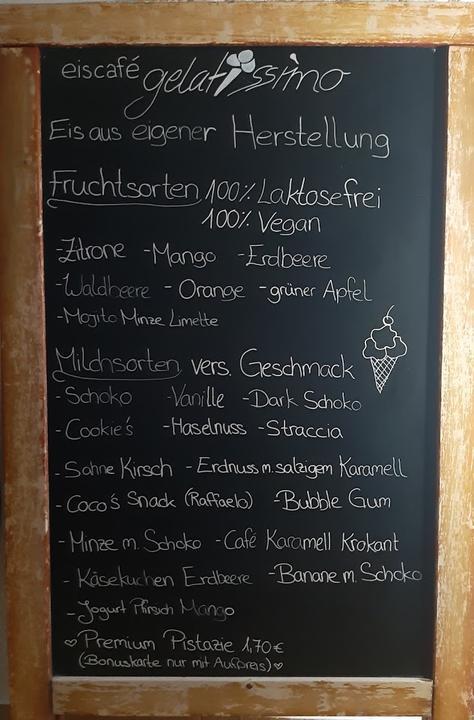 eiscafé gelatissimo
Eis aus eigener Herstellung
Fruchtsorten 100% Laktosefrei
100% Vegan
-Zitrone -Mango -Erdbeere
-Waldbeere -Orange -grüner Apfel
-Mojito Minze Limette
Milchsorten vers. Geschmack
-Schoko -Vanille -Dark Schoko
-Cookie's -Haselnuss -Straccia
-Sahne Kirsch -Erdnuss m. salzigem Karamell
-Coco's Snack (Raffaelo) -Bubble Gum
-Minze m. Schoko -Café Karamell Krokant
-Käsekuchen Erdbeere -Banane m. Schoko
-Jogurt Pfirsich Mango
♡Premium Pistazie 1,70€
(Bonuskarte nur mit Aufpreis)♡